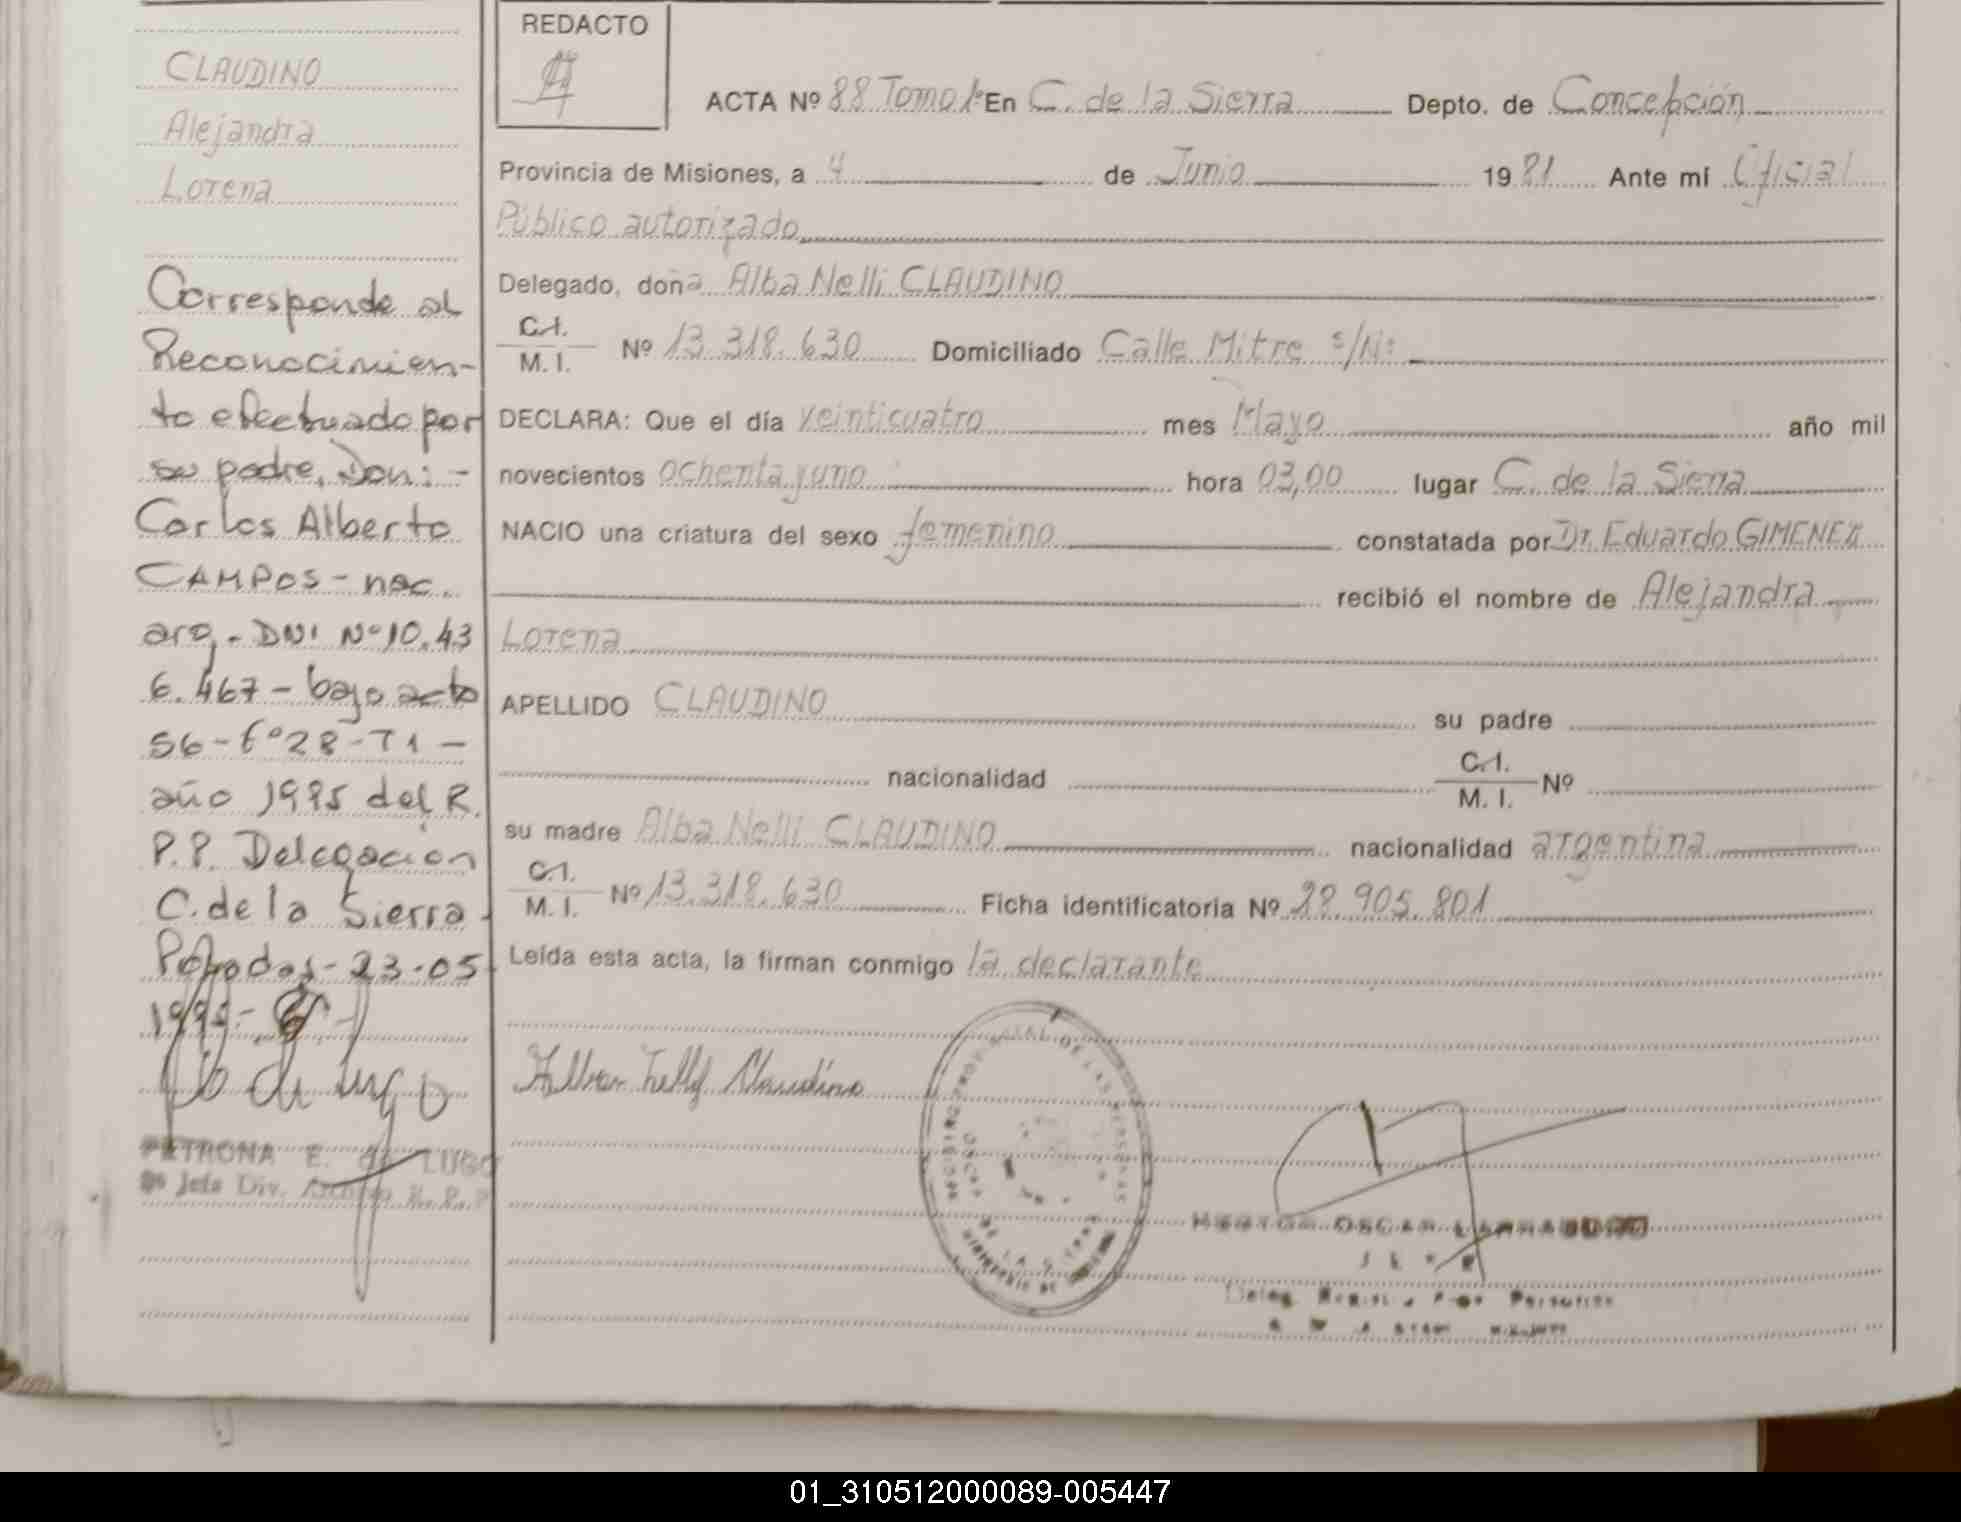 CLAUDINO
Alejandra
Lorena
Corresponde al
Reconocimien-
to efectuado por
su padre, Don: -
Carlos Alberto
CAMPOS - nac.
arg. - DNI Nº 10.43
6.467 - bajo acto
56 - fº 28 - T1 -
año 1995 del R.
P.P. Delegación
C. de la Sierra -
Posadas - 23-05-
1995.-
PETRONA E. de LUGO
Jefe Div. Archivo R. P. P.
REDACTO
ACTA Nº 88 Tomo 1º En C. de la Sierra Depto. de Concepción
Provincia de Misiones, a 4 de Junio 1981 Ante mí Oficial
Público autorizado
Delegado, doña Alba Nelli CLAUDINO
C.I.
M. I. Nº 13.318.630 Domiciliado Calle Mitre s/Nº
DECLARA: Que el día veinticuatro mes Mayo año mil
novecientos ochenta y uno hora 03,00 lugar C. de la Sierra
NACIO una criatura del sexo femenino constatada por Dr. Eduardo GIMENEZ
recibió el nombre de Alejandra
Lorena
APELLIDO CLAUDINO su padre
nacionalidad C.I.
M. I. Nº
su madre Alba Nelli CLAUDINO nacionalidad argentina
C.I.
M. I. Nº 13.318.630 Ficha identificatoria Nº 28.905.801
Leída esta acta, la firman conmigo la declarante
Claudino
DE LAS PERSONAS
OSCAR
Personas
01_310512000089-005447